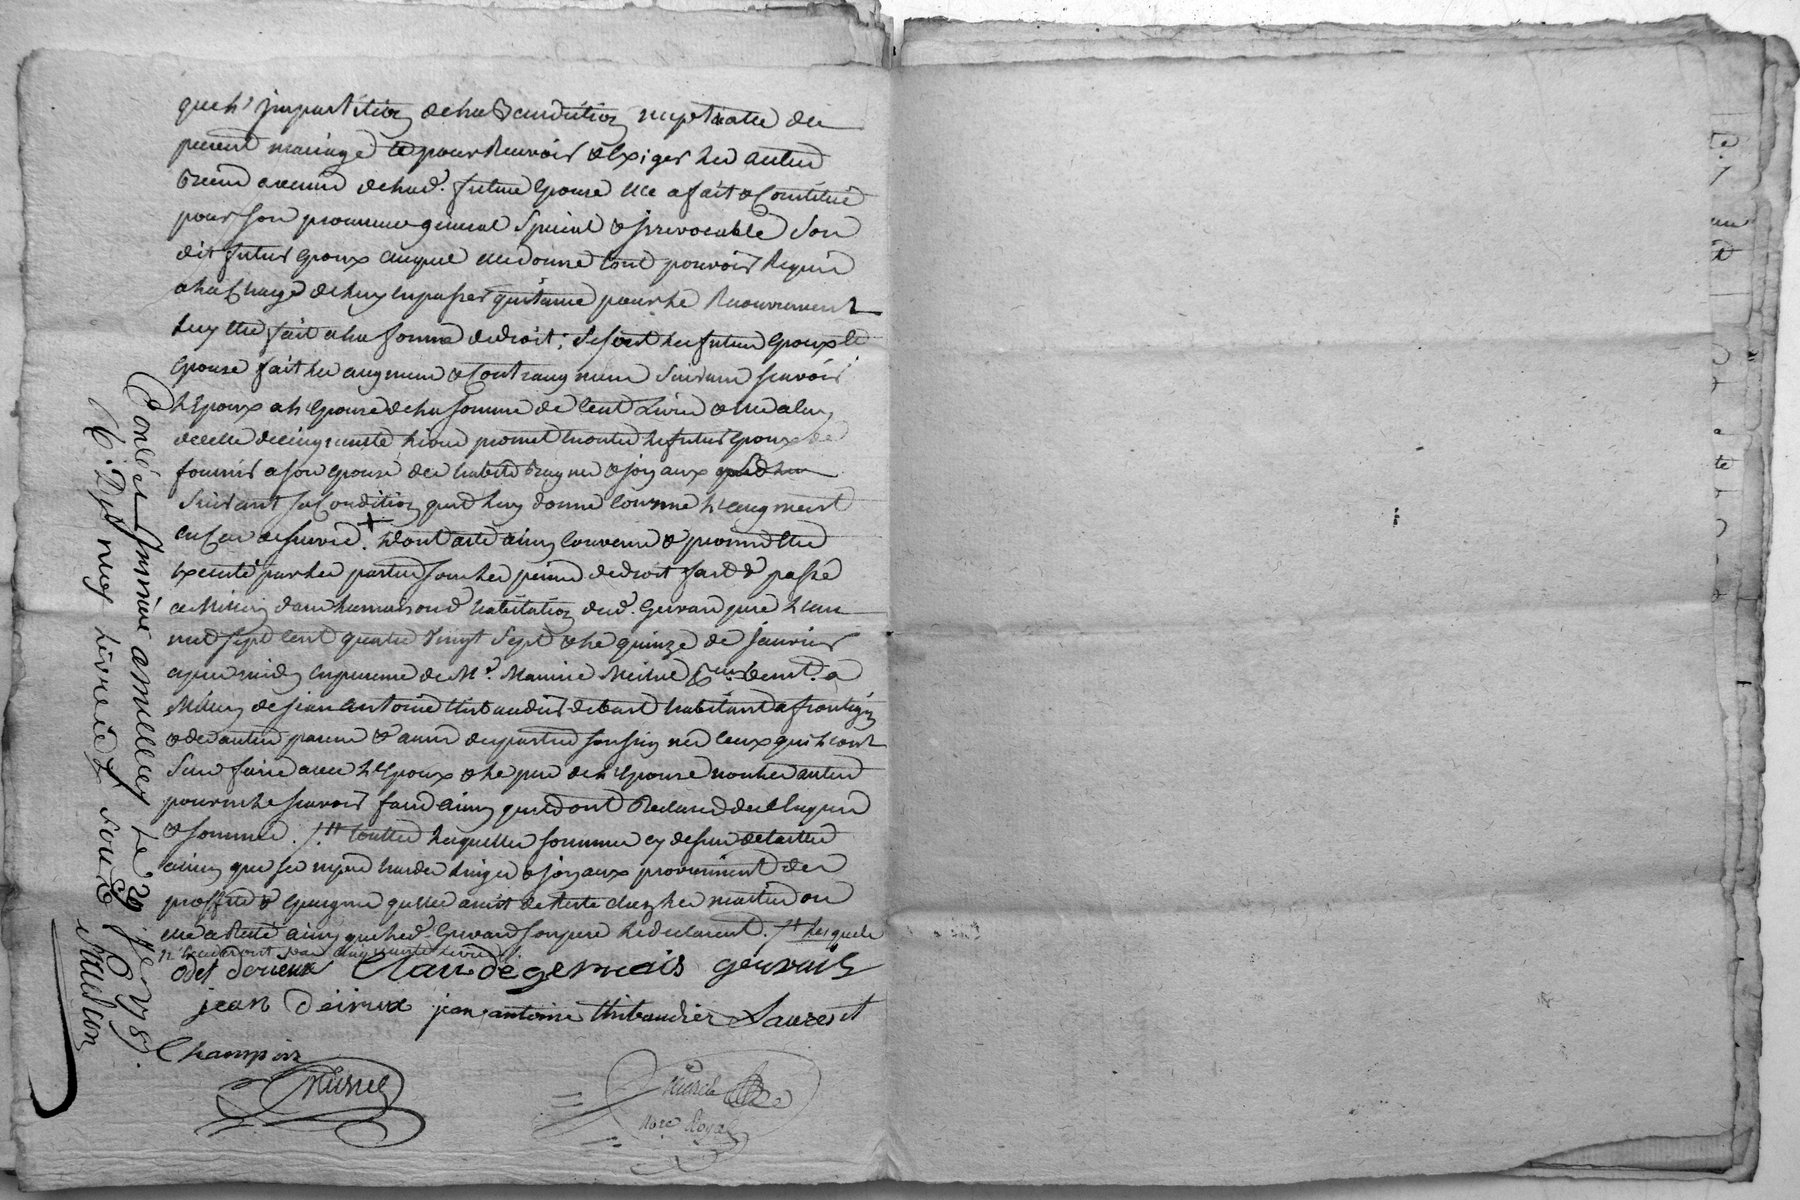 que l'impartition de la Benediction nuptiale du
present mariage et pour Recevoir & Exiger les autres
Biens avenir de lad. future Epouse elle a fait & Constitué
pour son procureur general Special & jrrevocable Son
dit futur Epoux auquel elle donne tout pouvoir Requis
a la Charge de luy en passer quitance pour le Recouvrement
luy etre fait a la forme de droit; Se sont les futurs Epoux et
Epouse fait les augment & Contraugment Suivant scavoir
l'Epoux a l'Epouse de la somme de Cent Livres & elle a luy
de celle de cinquante livres promet en outre le futur Epoux de
fournir a son Epouse des habits Bagues & joyaux
Suivant sa Condition qu'il luy donne comme l'augment
en Cas de survie. + Dont acte ainsy Convenu & promis etre
Executé par les parties sous les peines de droit fait & passé
a Millery dans la maison d'habitation dud. Gervais pere l'an
mil sept cent quatre vingt Sept & le quinze de janvier
apres midy en presence de Mr. Maurice
Millery de jean antoine thibaudier habitant a frontigny
& des autres parens & amis des parties soussignes ceux qui l'ont
Sceu faire avec l'Epoux & le pere de l'Epouse non les autres
pour ne le scavoir faire ainsy qu'ils ont Declaré de ce Enquis
& sommés. toutes lesquelles sommes cy dessus detaillés
ainsy que ses nipes hardes linges & joyaux proviennent des
proffits & Epargnes qu'elle avoit de Reste chez les maitres ou
elle a Resté ainsy que led. Gervais son pere le declarent. lesquels
cinquante livres
odet derieux Claude gervais gervais
jean Deirieux jean antoine thibaudier Laurent
Champin
not. Royal
Controlé et Insinué a Millery Le 29 Jer 1787.
R. Dix neuf livres